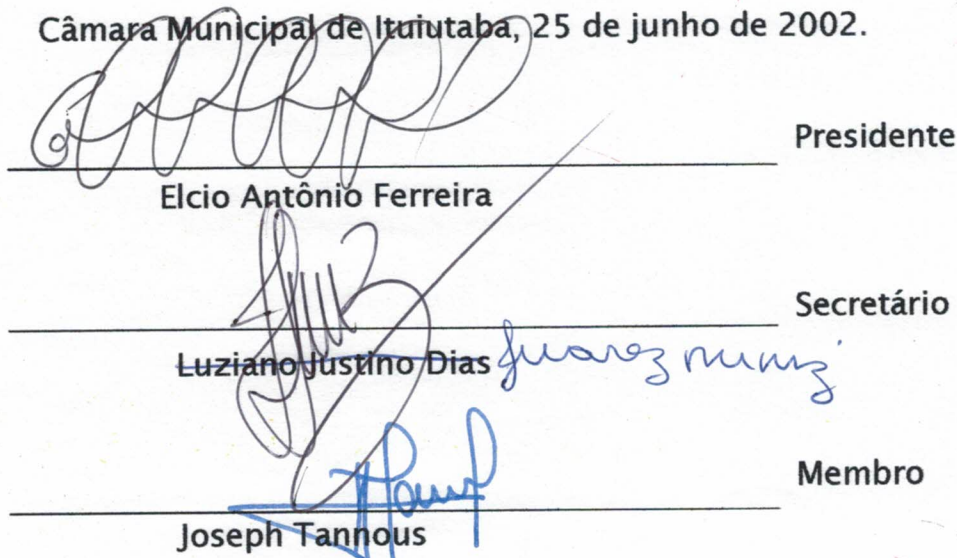 Câmara Municipal de Ituiutaba, 25 de junho de 2002.
Presidente
Elcio Antônio Ferreira
Secretário
Luziano Justino Dias Juarez Muniz
Membro
Joseph Tannous